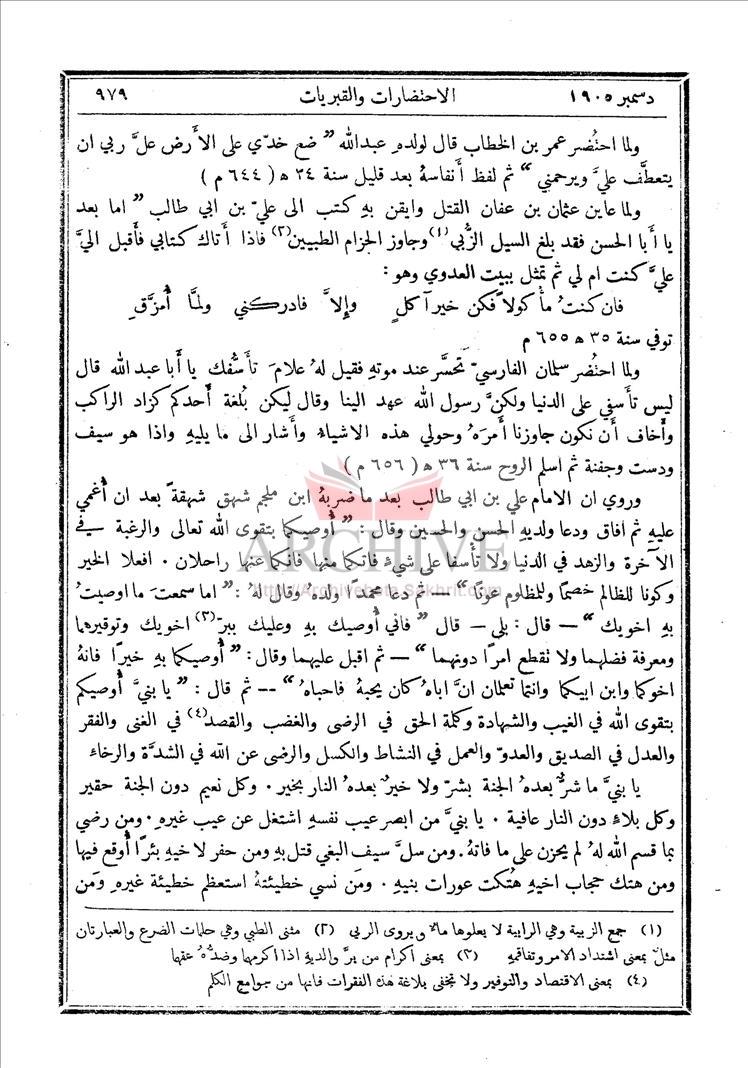 دسمبر ١٩٠٥ الاحتضارات والقبريات ٩٧٩
ولما احتُضر عمر بن الخطاب قال لولدهِ عبدالله " ضع خدّي على الأَرض علَّ ربي ان
يتعطَّف عليَّ ويرحمني " ثم لفظ أَنفاسهُ بعد قليل سنة ٢٤ ه ( ٦٤٤ م )
ولما عاين عثمان بن عفان القتل وايقن بهِ كتب الى عليّ بن ابي طالب " اما بعد
يا أَبا الحسن فقد بلغ السيل الزُّبى(١) وجاوز الحزام الطبيين(٢) فاذا أَتاك كتابي فأَقبل اليَّ
عليَّ كنت ام لي ثم تمثل ببيت العدوي وهو :
فان كنتُ مأْكولاً فكن خيرآكلٍ وإلاَّ فادركني ولمَّا أُمزَّقِ
توفي سنة ٣٥ ه ٦٥٥ م
ولما احتُضر سلمان الفارسيّ تحسَّر عند موتهِ فقيل لهُ علامَ تأَسُّفك يا أَبا عبد الله قال
ليس تأَسفي على الدنيا ولكنَّ رسول الله عهد الينا وقال ليكن بُلغة أَحدكم كزاد الراكب
وأَخاف أَن نكون جاوزنا أَمرَهُ وحولي هذه الاشياءُ وأَشار الى ما يليهِ واذا هو سيف
ودست وجفنة ثم اسلم الروح سنة ٣٦ ه ( ٦٥٦ م )
وروي ان الامام علي بن ابي طالب بعد ما ضربهُ ابن ملجم شهق شهقةً بعد ان أُغمي
عليهِ ثم افاق ودعا ولديهِ الحسن والحسين وقال : " أُوصيكما بتقوى الله تعالى والرغبة في
الآخرة والزهد في الدنيا ولا تأْسفا على شيءٍ فاتكما منها فانكما عنها راحلان . افعلا الخير
وكونا للظالم خصمًا وللمظلوم عونًا " — ثم دعا محمدًا ولدهُ وقال لهُ : " اما سمعتَ ما اوصيتُ
بهِ اخويك " — قال : بلى — قال " فاني أُوصيك بهِ وعليك ببرّ(٣) اخويك وتوقيرهما
ومعرفة فضلهما ولا تقطع امرًا دونهما " — ثم اقبل عليهما وقال : " أُوصيكما بهِ خيرًا فانهُ
اخوكما وابن ابيكما وانتما تعلمان انَّ اباهُ كان يحبهُ فاحباهُ " -- ثم قال : " يا بنيَّ أُوصيكم
بتقوى الله في الغيب والشهادة وكلمة الحق في الرضى والغضب والقصد(٤) في الغنى والفقر
والعدل في الصديق والعدوّ والعمل في النشاط والكسل والرضى عن الله في الشدَّة والرخاءِ
يا بنيَّ ما شرٌّ بعدهُ الجنة بشرّ ولا خيرٌ بعدهُ النار بخير . وكل نعيم دون الجنة حقير
وكل بلاءٍ دون النار عافية . يا بنيَّ من ابصر عيب نفسهِ اشتغل عن عيب غيرهِ . ومن رضي
بما قسم الله لهُ لم يحزن على ما فاتهُ . ومن سلَّ سيف البغي قتل بهِ ومن حفر لاخيهِ بئرًا أُوقع فيها
ومن هتك حجاب اخيهِ هُتكت عورات بنيهِ . ومَن نسي خطيئتهُ استعظم خطيئة غيرهِ ومَن
(١) جمع الزبية وهي الرابية لا يعلوها ماءٌ ويروى الربى (٢) مثنى الطبي وهي حلمات الضرع والعبارتان
مثلٌ بمعنى اشتداد الامر وتفاقمهِ (٣) بمعنى اكرام من برَّ والديهِ اذا اكرمها وضدُّهُ عقها
(٤) بمعنى الاقتصاد والتوفير ولا تخفى بلاغة هذه الفقرات فانها من جوامع الكلم
ARCHIVE
http://Archivebeta.Sakhrit.com